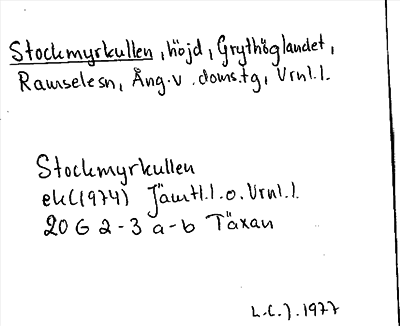 Stockmyrkullen, höjd, Grythöglandet,
Ramselesn, Ång.v.doms.tg, Vrnl.l.
Stockmyrkullen
ek(1974) Jämtl.l.o.Vrnl.l.
20 G 2-3 a-b Täxan
L.C.J.1977